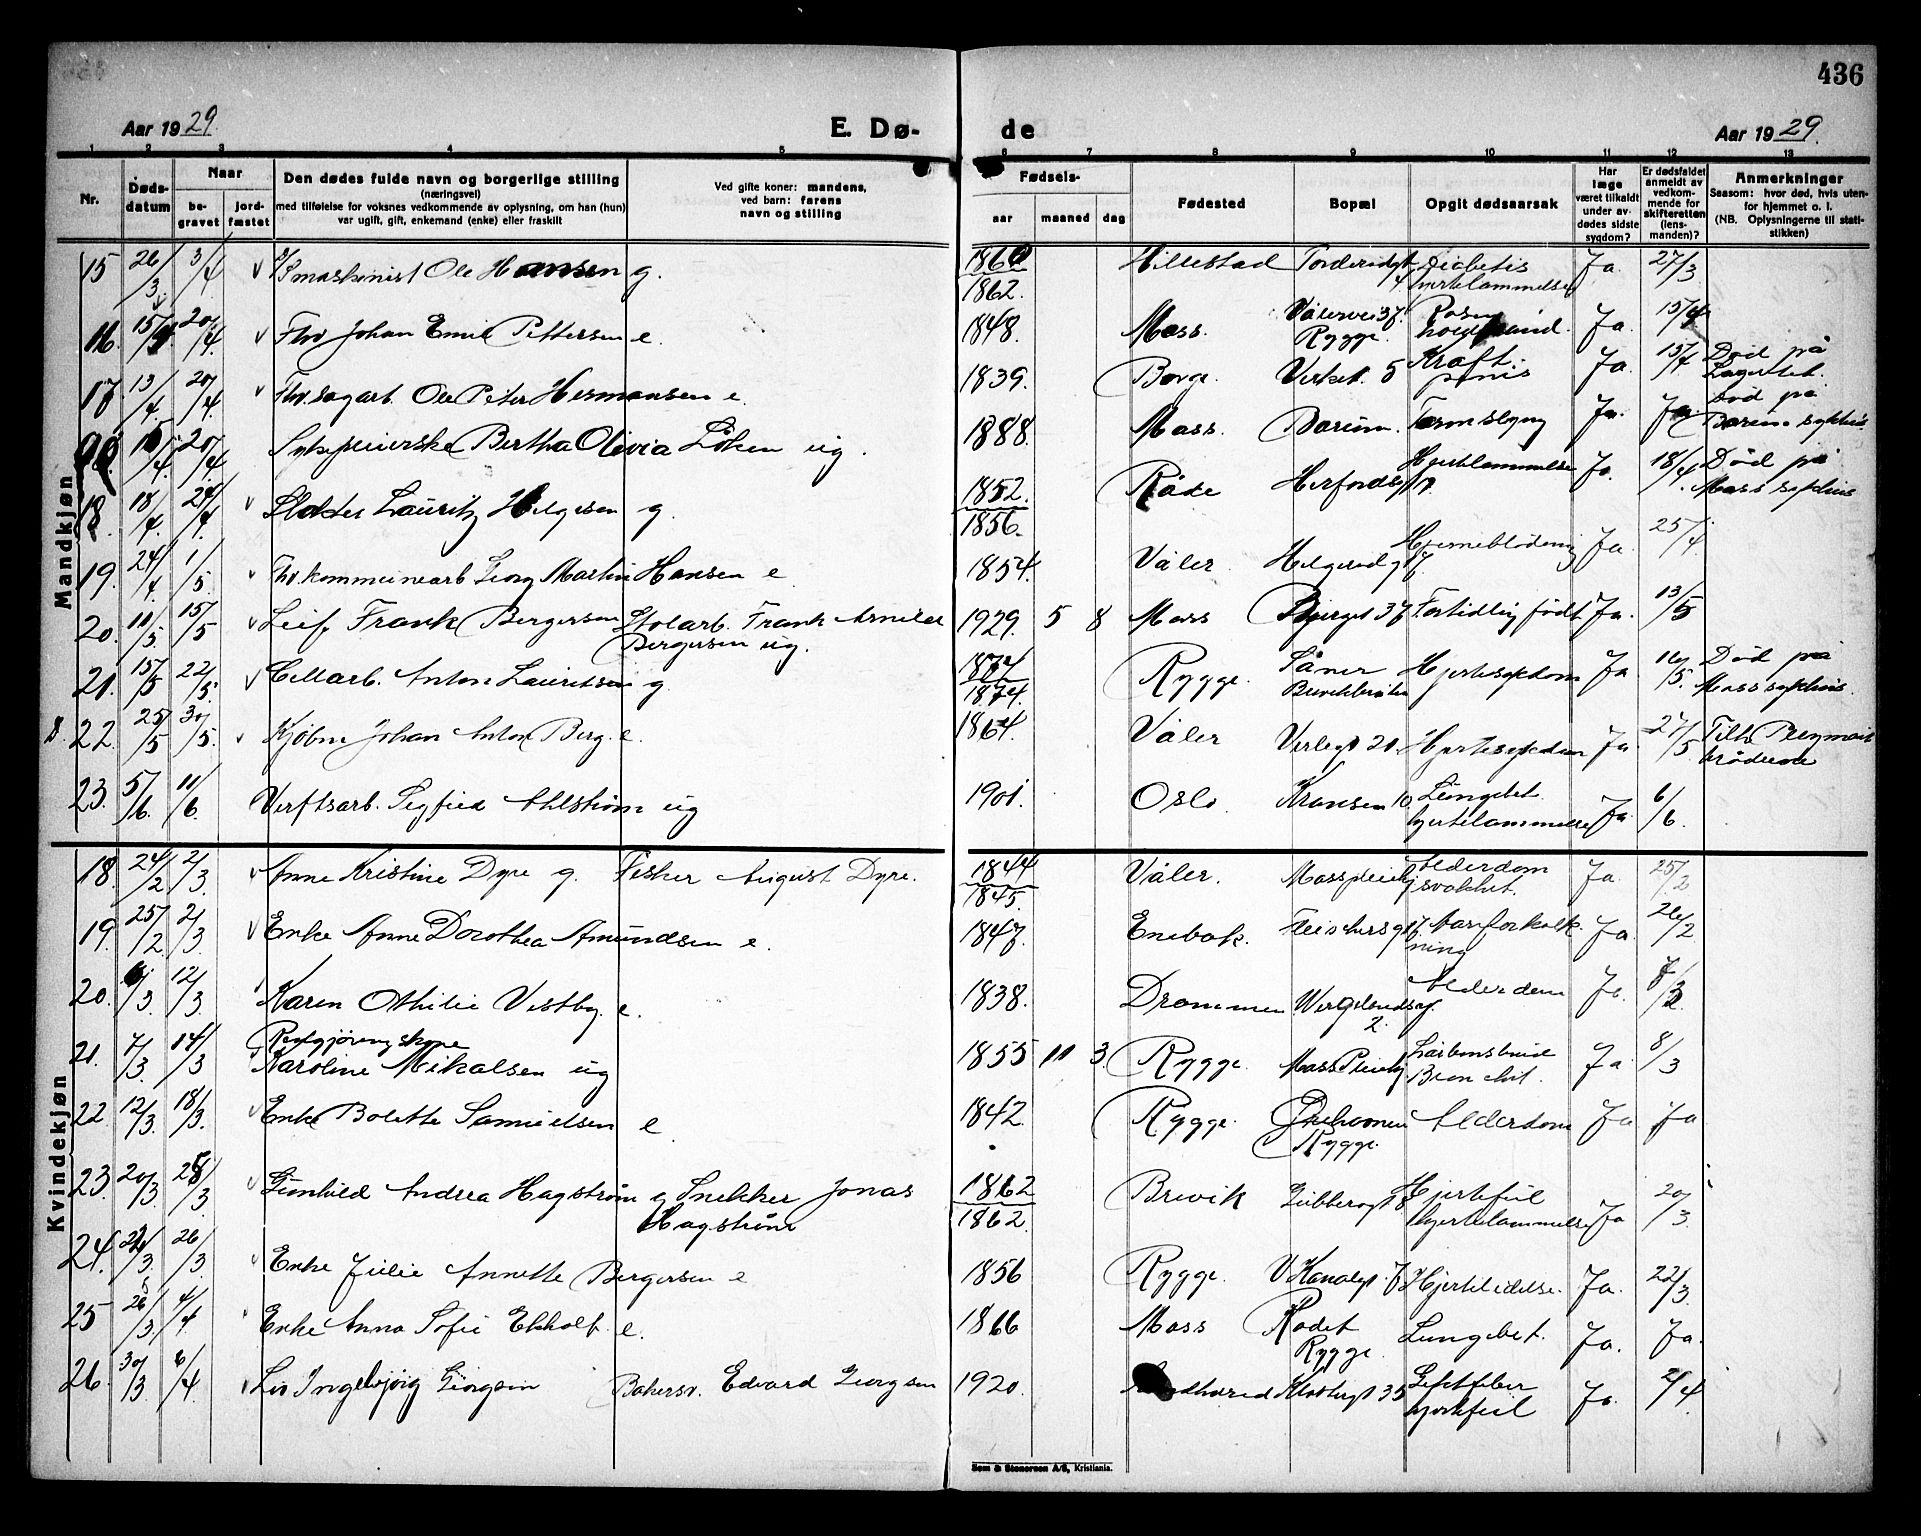 436
Aar 1929.
E. Dø-
de
Aar 1929.
1 2 3 4 5 6 7 8 9 10 11 12 13
Nr.
Døds-
datum
Naar
be-
gravet
jord-
fæstet
Den dødes fulde navn og borgerlige stilling
(næringsvei)
med tilføielse for voksnes vedkommende av oplysning, om han (hun)
var ugift, gift, enkemand (enke) eller fraskilt
Ved gifte koner: mandens,
ved barn: farens
navn og stilling
Fødsels-
aar maaned dag
Fødested
Bopæl
Opgit dødsaarsak
Har
læge
været tilkaldt
under av-
dødes sidste
sygdom?
Er dødsfaldet
anmeldt av
vedkom-
mende for
skifteretten
(lens-
manden)?
Anmerkninger
Saasom: hvor død, hvis uten-
for hjemmet o. l.
(NB. Oplysningerne til stati-
stikken)
Mandkjøn
15 26/3 3/4 maskinist Ole Hansen g. 1860 1862. Hillestad Diabetis hjertelammelse Ja 27/3
16. 15/4 20/4 Fhv Johan Emil Pettersen e. 1848. Moss. Vålervei 37. Rygge. Rosen Ja. 15/4
17 13/4. 20/4 Fhv. sagarb. Ole Peter Hermansen e. 1839. Borge. Verket 5 Ja. 15/4 Død på
20/4. Sykepleierske Bertha Olivia Löken ug. 1888. Moss. Bærum. Tarmslyng Ja. Ja Død på Bærum sykehus
18. 18/4 24/4. Slakter Lauritz Helgesen g. 1852. 1856. Råde Herfordsgt 17. Hjertelammelse Ja. 18/4 Død på Moss sykehus
19. 24/4 1/5 Fhv. kommunearb Georg Martin Hansen e 1854. Våler. Helgerødgt Hjerneblödning Ja. 25/4
20. 11/5 15/5 Leif Frank Bergersen Stolarb. Frank Arnilds Bergersen ug. 1929. 5 8 Moss Bjerget 37 Fortidlig født Ja. 13/5
21. 15/5 22/5. Cellarb. Anton Lauritsen g. 1874 1874. Rygge. Såner Hjertesykdom Ja 16/5. Død på Moss sykehus.
22. 25/5 30/5. Kjöbm Johan Anton Berg. e. 1864. Våler Verlegt 21. Hjertesykdom Ja 27/5
23. 5/6. 11/6. Verftsarb. Sigfrid Ahlström ug 1901. Oslo Kransen 10. Lungebet. hjertelammelse Ja 6/6.
Kvindekjøn
18. 24/2 2/3. Anne Kristine Dyre g. Fisker August Dyre. 1844 1845. Våler. Moss pleiehj Alderdom svakhet. Ja. 25/2
19. 25/2 2/3 Enke Anne Dorothea Amundsen e. 1847. Enebak. Fleischersgt Aareforkalkning Ja. 26/2
20. 6/3 12/3 Karen Othilie Vestby. e. 1838. Drammen Wergelandsgt. 2. Alderdom Ja.
21. 7/3. 14/3 Rengjøringskone Karoline Mikalsen ug 1855 11 3. Rygge. Moss Pleiehj Bronchit. Ja 8/3
22 12/3. 18/3. Enke Bolette Samuelsen e. 1842. Rygge. Rygge. Alderdom Ja Ja
23. 20/3 25/3 Gunhild Andrea Hagström g Snekker Jonas Hagström 1862 1862. Brevik Gubberogt 8 Hjertefeil hjertelammelse Ja 20/3.
24. 22/3. 26/3 Enke Julie Annette Bergersen e 1856 Rygge. V Kanalgt. 7 Hjertelidelse. Ja. 22/3.
25 26/3. 4/4 Enke Anna Sofie Ekholt e. 1866 Moss Rodet Rygge. Lungebet. Ja. Ja.
26. 30/3 6/4 Liv Ingebjörg Georgsen Bakersv. Edvard Georgsen 1920. Klostergt 35 Giktfeber hjertefeil Ja. 2/4.
Sem & Stenersen A/S, Kristiania.